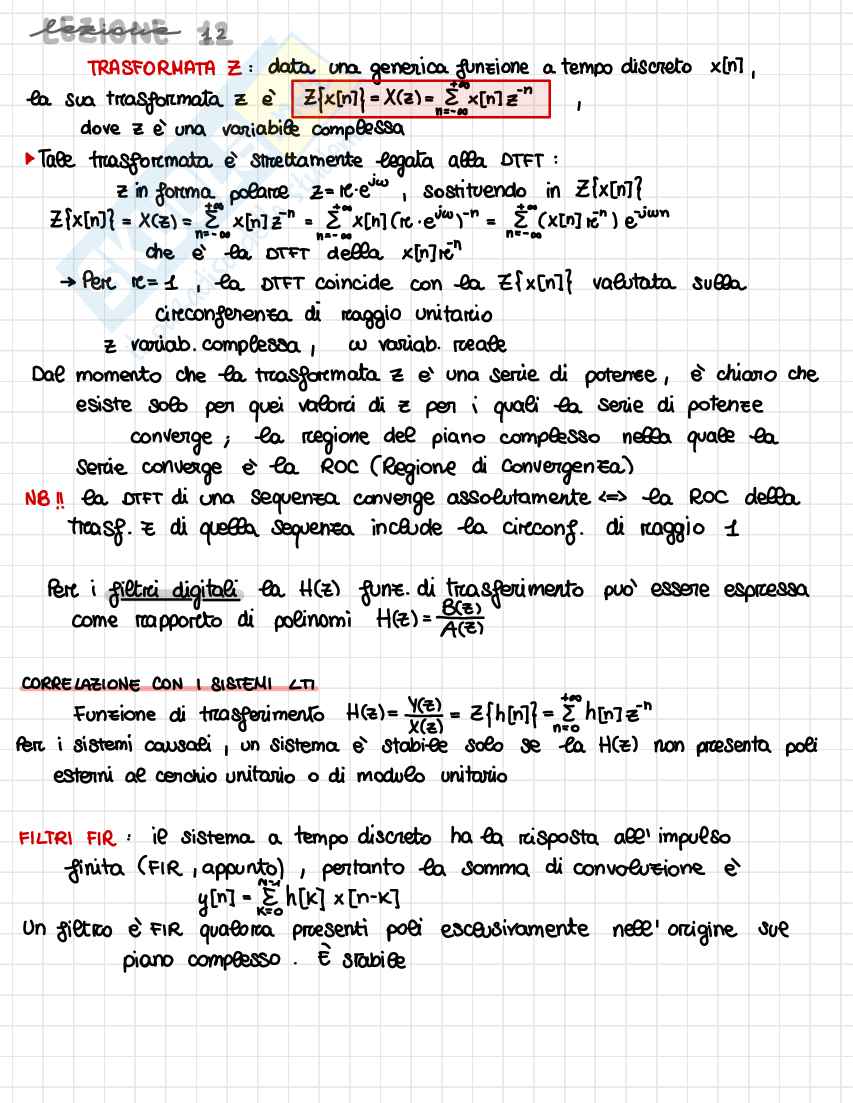 LEZIONE 12
TRASFORMATA Z : data una generica funzione a tempo discreto x[n] ,
la sua trasformata z è Z{x[n]} = X(z) = Σ_{n=-∞}^{+∞} x[n] z^{-n} ,
dove z è una variabile complessa
▶ Tale trasformata è strettamente legata alla DTFT :
z in forma polare z = r·e^{jω} , sostituendo in Z{x[n]}
Z{x[n]} = X(z) = Σ_{n=-∞}^{+∞} x[n] z^{-n} = Σ_{n=-∞}^{+∞} x[n] (r·e^{jω})^{-n} = Σ_{n=-∞}^{+∞} (x[n] r^{-n}) e^{-jωn}
che è la DTFT della x[n] r^{-n}
→ Per r = 1 , la DTFT coincide con la Z{x[n]} valutata sulla
circonferenza di raggio unitario
z variab. complessa , ω variab. reale
Dal momento che la trasformata z è una serie di potenze, è chiaro che
esiste solo per quei valori di z per i quali la serie di potenze
converge ; la regione del piano complesso nella quale la
serie converge è la ROC (Regione di Convergenza)
NB !! la DTFT di una sequenza converge assolutamente <=> la ROC della
trasf. z di quella sequenza include la circonf. di raggio 1
Per i filtri digitali la H(z) funz. di trasferimento può essere espressa
come rapporto di polinomi H(z) = B(z)/A(z)
CORRELAZIONE CON I SISTEMI LTI
Funzione di trasferimento H(z) = Y(z)/X(z) = Z{h[n]} = Σ_{n=0}^{+∞} h[n] z^{-n}
Per i sistemi causali , un sistema è stabile solo se la H(z) non presenta poli
esterni al cerchio unitario o di modulo unitario
FILTRI FIR : il sistema a tempo discreto ha la risposta all' impulso
finita (FIR , appunto) , pertanto la somma di convoluzione è
y[n] = Σ_{k=0}^{N-1} h[k] x[n-k]
Un filtro è FIR qualora presenti poli esclusivamente nell' origine sul
piano complesso . È stabile